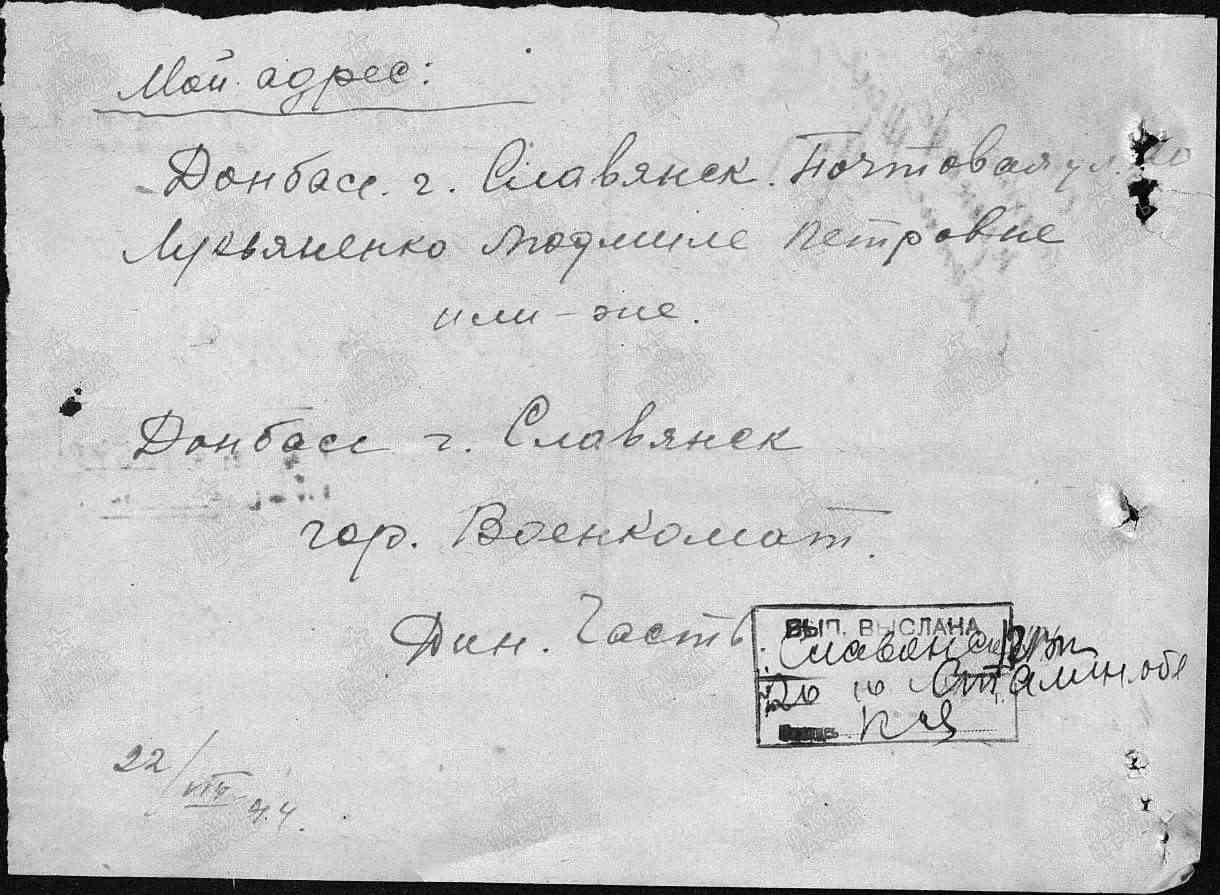 Мой адрес:
Донбасс. г. Славянск. Почтовая ул.
Лукьяненко Людмиле Петровне
или-же.
Донбасс г. Славянск
гор. Военкомат.
Фин. Часть.
ВЫП. ВЫСЛАНА
Славянск
Сталин. обл
22/VIII 44.